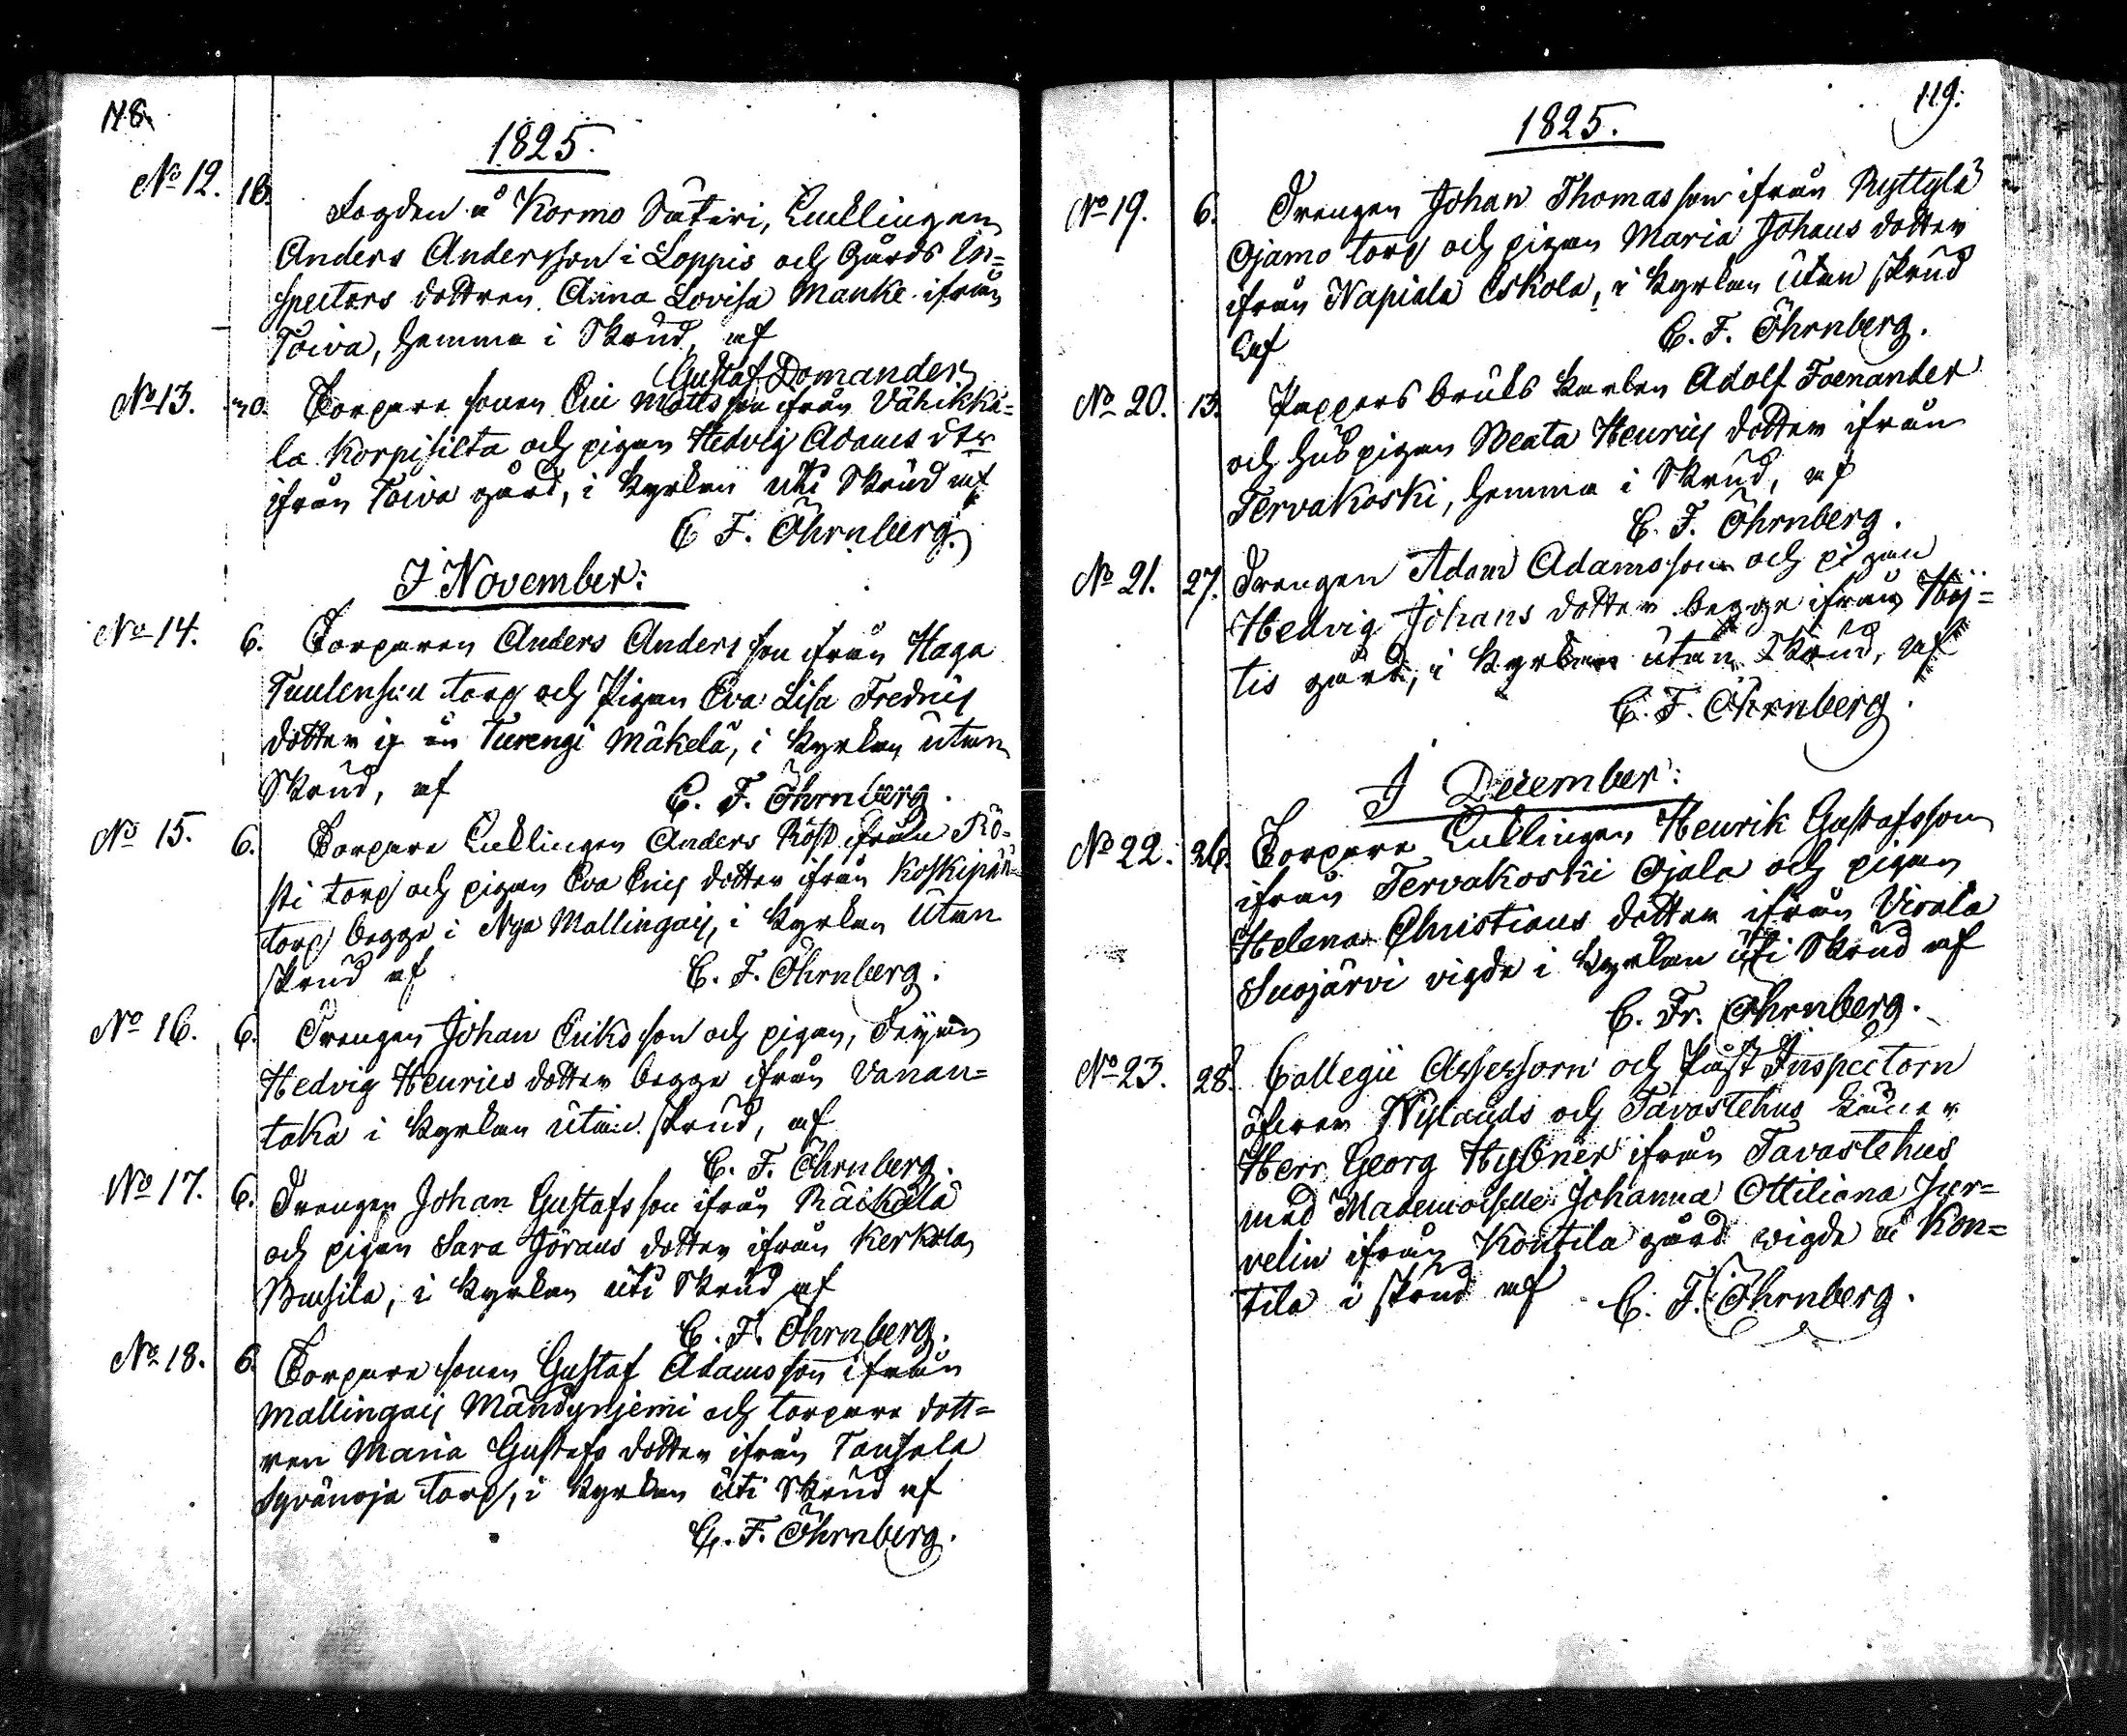 118.
1825.
No 12. 16. Fogden å Kormo Säteri, Enklingen
Anders Andersson i Loppis och Gårds In=
spectors dottren Anna Lovisa Manke ifrån
Toiva, hemma i Skrud, af
Gustaf Domander
No 13. 30. Torpare sonen Eric Mattsson ifrån Vähikkä=
la Korpisilta och pigan Hedvig Adams dtr
ifrån Toiva gård, i Kyrkan uti Skrud af
C F. Öhrnberg.
I November:
No 14. 6. Torparen Anders Andersson ifrån Haga
torp och Pigan Eva Lisa Fredrics
dotter Turengi Mäkelä, i Kyrkan utan
Skrud, af C. F. Öhrnberg.
No 15. 6. Torpare Enklingen Anders Röst ifrån Rö=
sti torp och pigan Eva Erics dotter ifrån
torp begge i Nya Mallingais, i Kyrkan utan
skrud af C. F. Öhrnberg.
No 16. 6. Drengen Johan Eriksson och pigan,
Hedvig Henrics dotter begge ifrån Vanan=
taka i Kyrkan utan skrud, af
C. F. Öhrnberg.
No 17. 6. Drengen Johan Gustafsson ifrån Räikälä
och pigan Sara Görans dotter ifrån Kerkola
i Kyrkan uti Skrud af
C. F. Öhrnberg.
No 18. 6. Torpare sonen Gustaf Adamsson ifrån
Mallingais Mändynjemi och torpare dott=
ren Maria Gustafs dotter ifrån Tansala
Syvänoja torp, i Kyrkan uti Skrud af
C. F. Öhrnberg.
119.
1825.
No 19. 6. Drengen Johan Thomasson ifrån Ryttylä
Ojamo torp och pigan Maria Johans dotter
ifrån Napiala Eskola, i Kyrkan utan skrud
af C. F. Öhrnberg.
No 20. 13. Pappers bruks Karlen Adolf Foenander
och hus pigan Beata Henrics dotter ifrån
Tervakoski, hemma i Skrud, af
C. F. Öhrnberg.
No 21. 27. Drengen Adam Adamsson och pigan
Hedvig Johans dotter begge ifrån Höj=
tis gård, i Kyrkan utan Skrud, af
C. F. Öhrnberg.
I December:
No 22. 26. Torpare Enklingen Henrik Gustafsson
ifrån Tervakoski Ojala och pigan
Helena Christians dotter ifrån Virala
Suojärvi vigde i Kyrkan uti Skrud af
C. Fr. Öhrnberg.
No 23. 28. Collegii Assessorn och Påst Inspectorn
öfver Nylands och Tavastehus Läner
Herr Georg Hybner ifrån Tavastehus
med Mademoiselle Johanna Ottiliana Jur=
velin ifrån Kontila gård wigde å Kon=
tila i skrud af C. F. Öhrnberg.